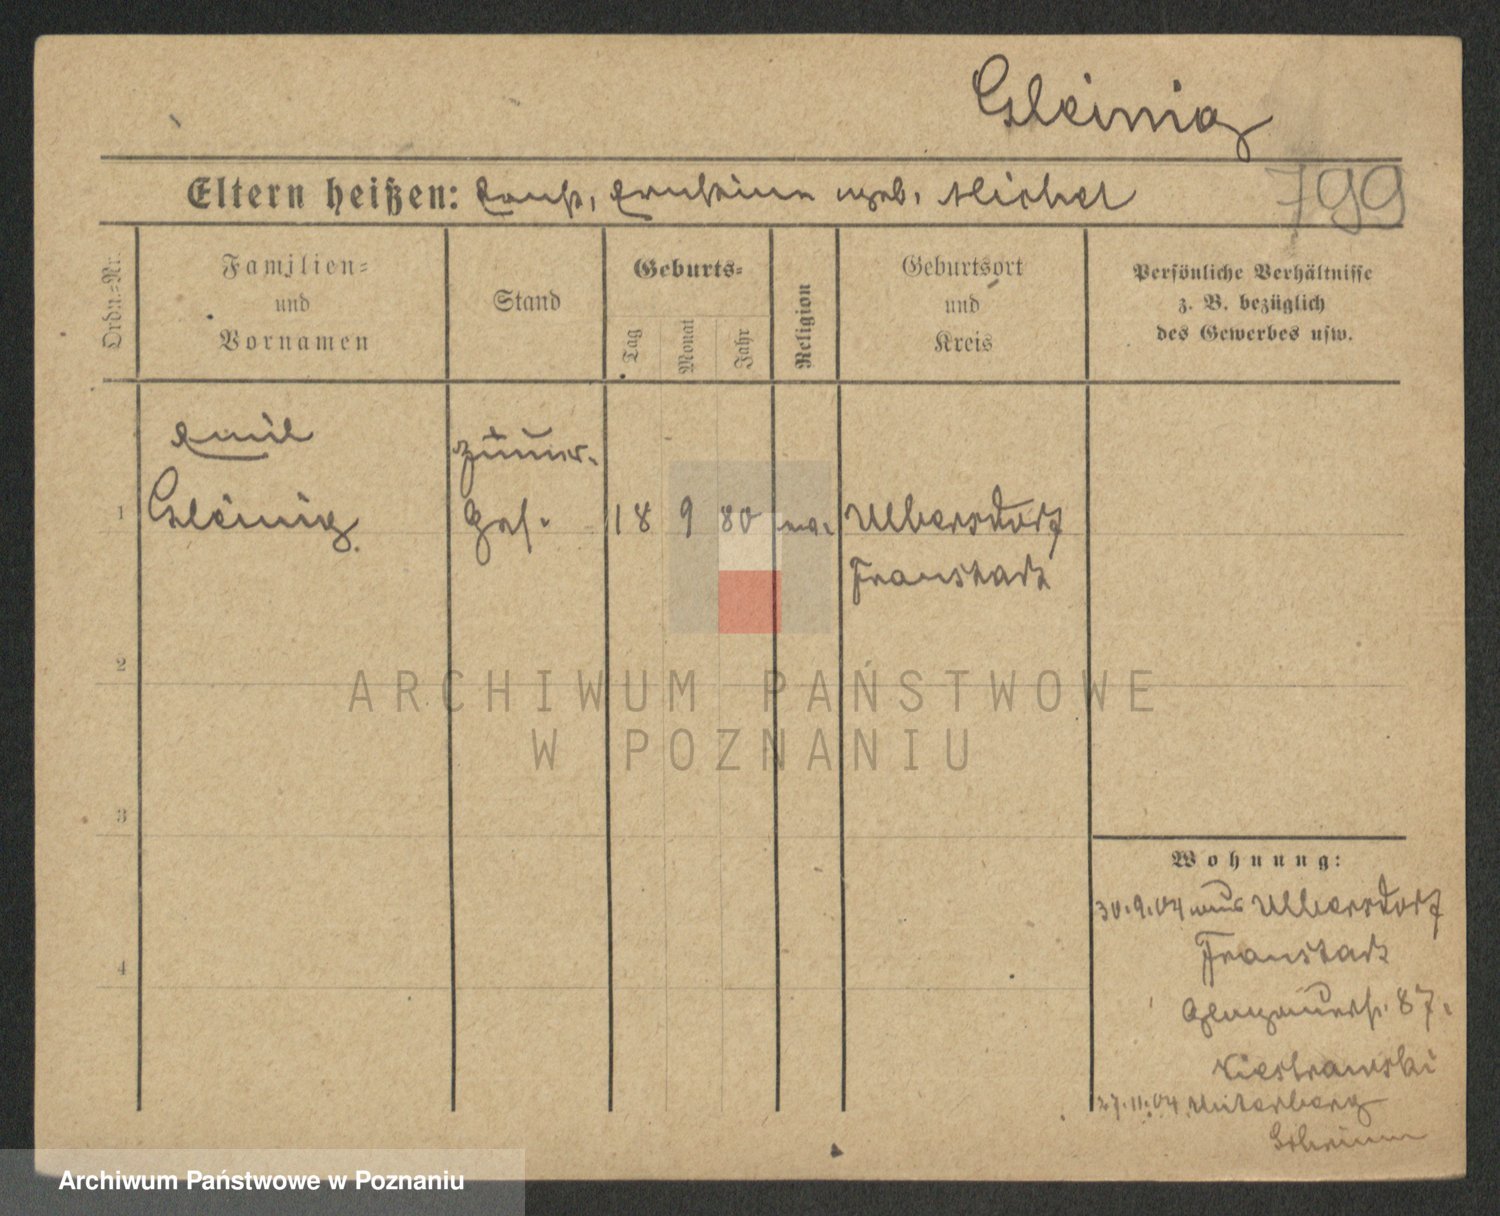 Gleinig
799
Eltern heißen: Ernst, Ernstine geb. Michel
Ordn.-Nr.
Familien-
und
Vornamen
Stand
Geburts-
Tag
Monat
Jahr
Religion
Geburtsort
und
Kreis
Persönliche Verhältnisse
z. B. bezüglich
des Gewerbes usw.
Emil
Zimmer-
1 Gleinig. Ges. 18 9 80 Ulbersdorf
Fraustadt
2
3
4
ARCHIWUM PAŃSTWOWE
W POZNANIU
Wohnung:
30.9.04 aus Ulbersdorf
Fraustadt
87.
27.11.04 Unterberg
Schrimm
Archiwum Państwowe w Poznaniu